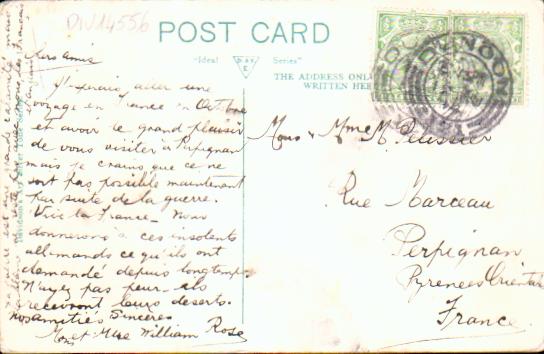 DIV14556
POST CARD
"Ideal Series"
THE ADDRESS ONLY
WRITTEN HERE
DUNOON
Chers Amis
J'espérais aller une
voyage en France en Octobre
et avoir le grand plaisir
de vous visiter à Perpignan
mais je crains que ce ne
soit pas possible maintenant
par suite de la guerre.
Vive la France - Nous
donnerons à ces insolents
allemands ce qu'ils ont
demandé depuis longtemps
N'ayez pas peur - ils
recevront leurs deserts.
nos amitiés sincères
Mons et Mme William Rose
Mons & Mme M. Pelissier
Rue Marceau
Perpignan
Pyrenees Orientales
France
la guerre est une grande calamité mais
nous les Français